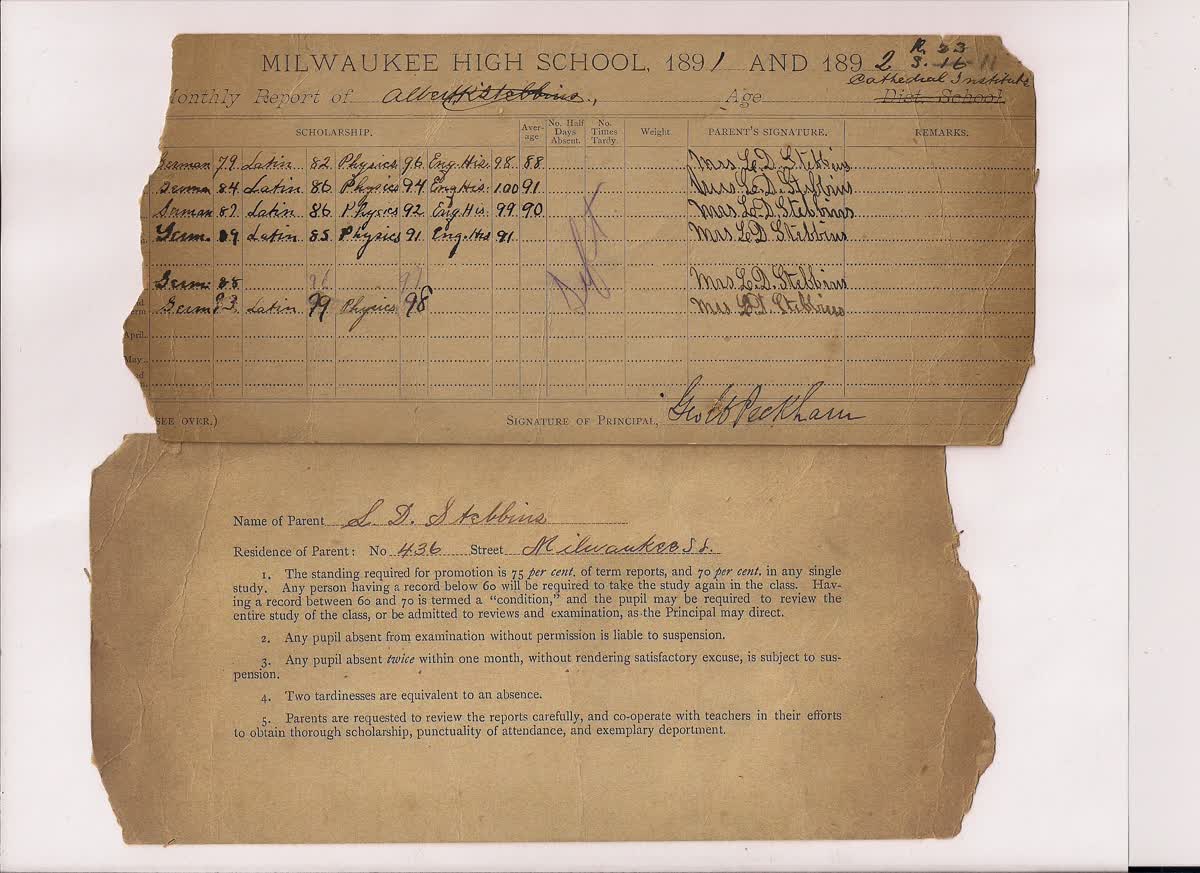 R. 23
MILWAUKEE HIGH SCHOOL, 1891 AND 1892 S. 16 11
Cathedral Institute
Monthly Report of Albert Stebbins, Age Dist. School
SCHOLARSHIP. Average No. Half Days Absent. No. Times Tardy. Weight. PARENT'S SIGNATURE. REMARKS.
German 79 Latin 82 Physics 96 Eng. His. 98. 88 Mrs L. D. Stebbins
84 Latin 86 Physics 94 Eng His. 100 91 Mrs L. D. Stebbins
German 87 Latin 86 Physics 92 Eng. His. 99 90 Mrs L. D. Stebbins
Germ. 89 Latin 85 Physics 91 Eng. His 91 Mrs L. D. Stebbins
Left
Germ. 88 96 91 Mrs L. D. Stebbins
Germ 93 Latin 99 Physics 98 Mrs L. D. Stebbins
April.
May.
SEE OVER.) SIGNATURE OF PRINCIPAL, Geo W Peckham
Name of Parent L. D. Stebbins
Residence of Parent: No 436 Street Milwaukee St.
1. The standing required for promotion is 75 per cent. of term reports, and 70 per cent. in any single
study. Any person having a record below 60 will be required to take the study again in the class. Hav-
ing a record between 60 and 70 is termed a "condition," and the pupil may be required to review the
entire study of the class, or be admitted to reviews and examination, as the Principal may direct.
2. Any pupil absent from examination without permission is liable to suspension.
3. Any pupil absent twice within one month, without rendering satisfactory excuse, is subject to sus-
pension.
4. Two tardinesses are equivalent to an absence.
5. Parents are requested to review the reports carefully, and co-operate with teachers in their efforts
to obtain thorough scholarship, punctuality of attendance, and exemplary deportment.